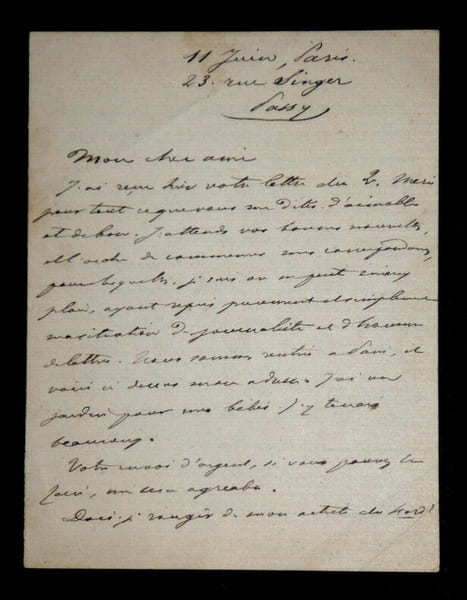 11 Juin, Paris.
23. rue Singer
Passy
Mon cher ami
J'ai reçu hier votre lettre du 2. Merci
pour tout ce que vous me dites d'aimable
et de bon. J'attends vos bonnes nouvelles,
et l'ordre de commencer mes correspondances,
pour lesquelles je suis on ne peut mieux
placé, ayant repris purement et simplement
ma situation de journaliste et d'homme
de lettres. Nous sommes rentrés à Paris, et
voici ci dessus mon adresse. J'ai un
jardin pour mes bébés. J'y tenais
beaucoup.
Votre envoi d'argent, si vous pouvez le
faire, me sera agréable.
Dois-je rougir de mon article du Nord?